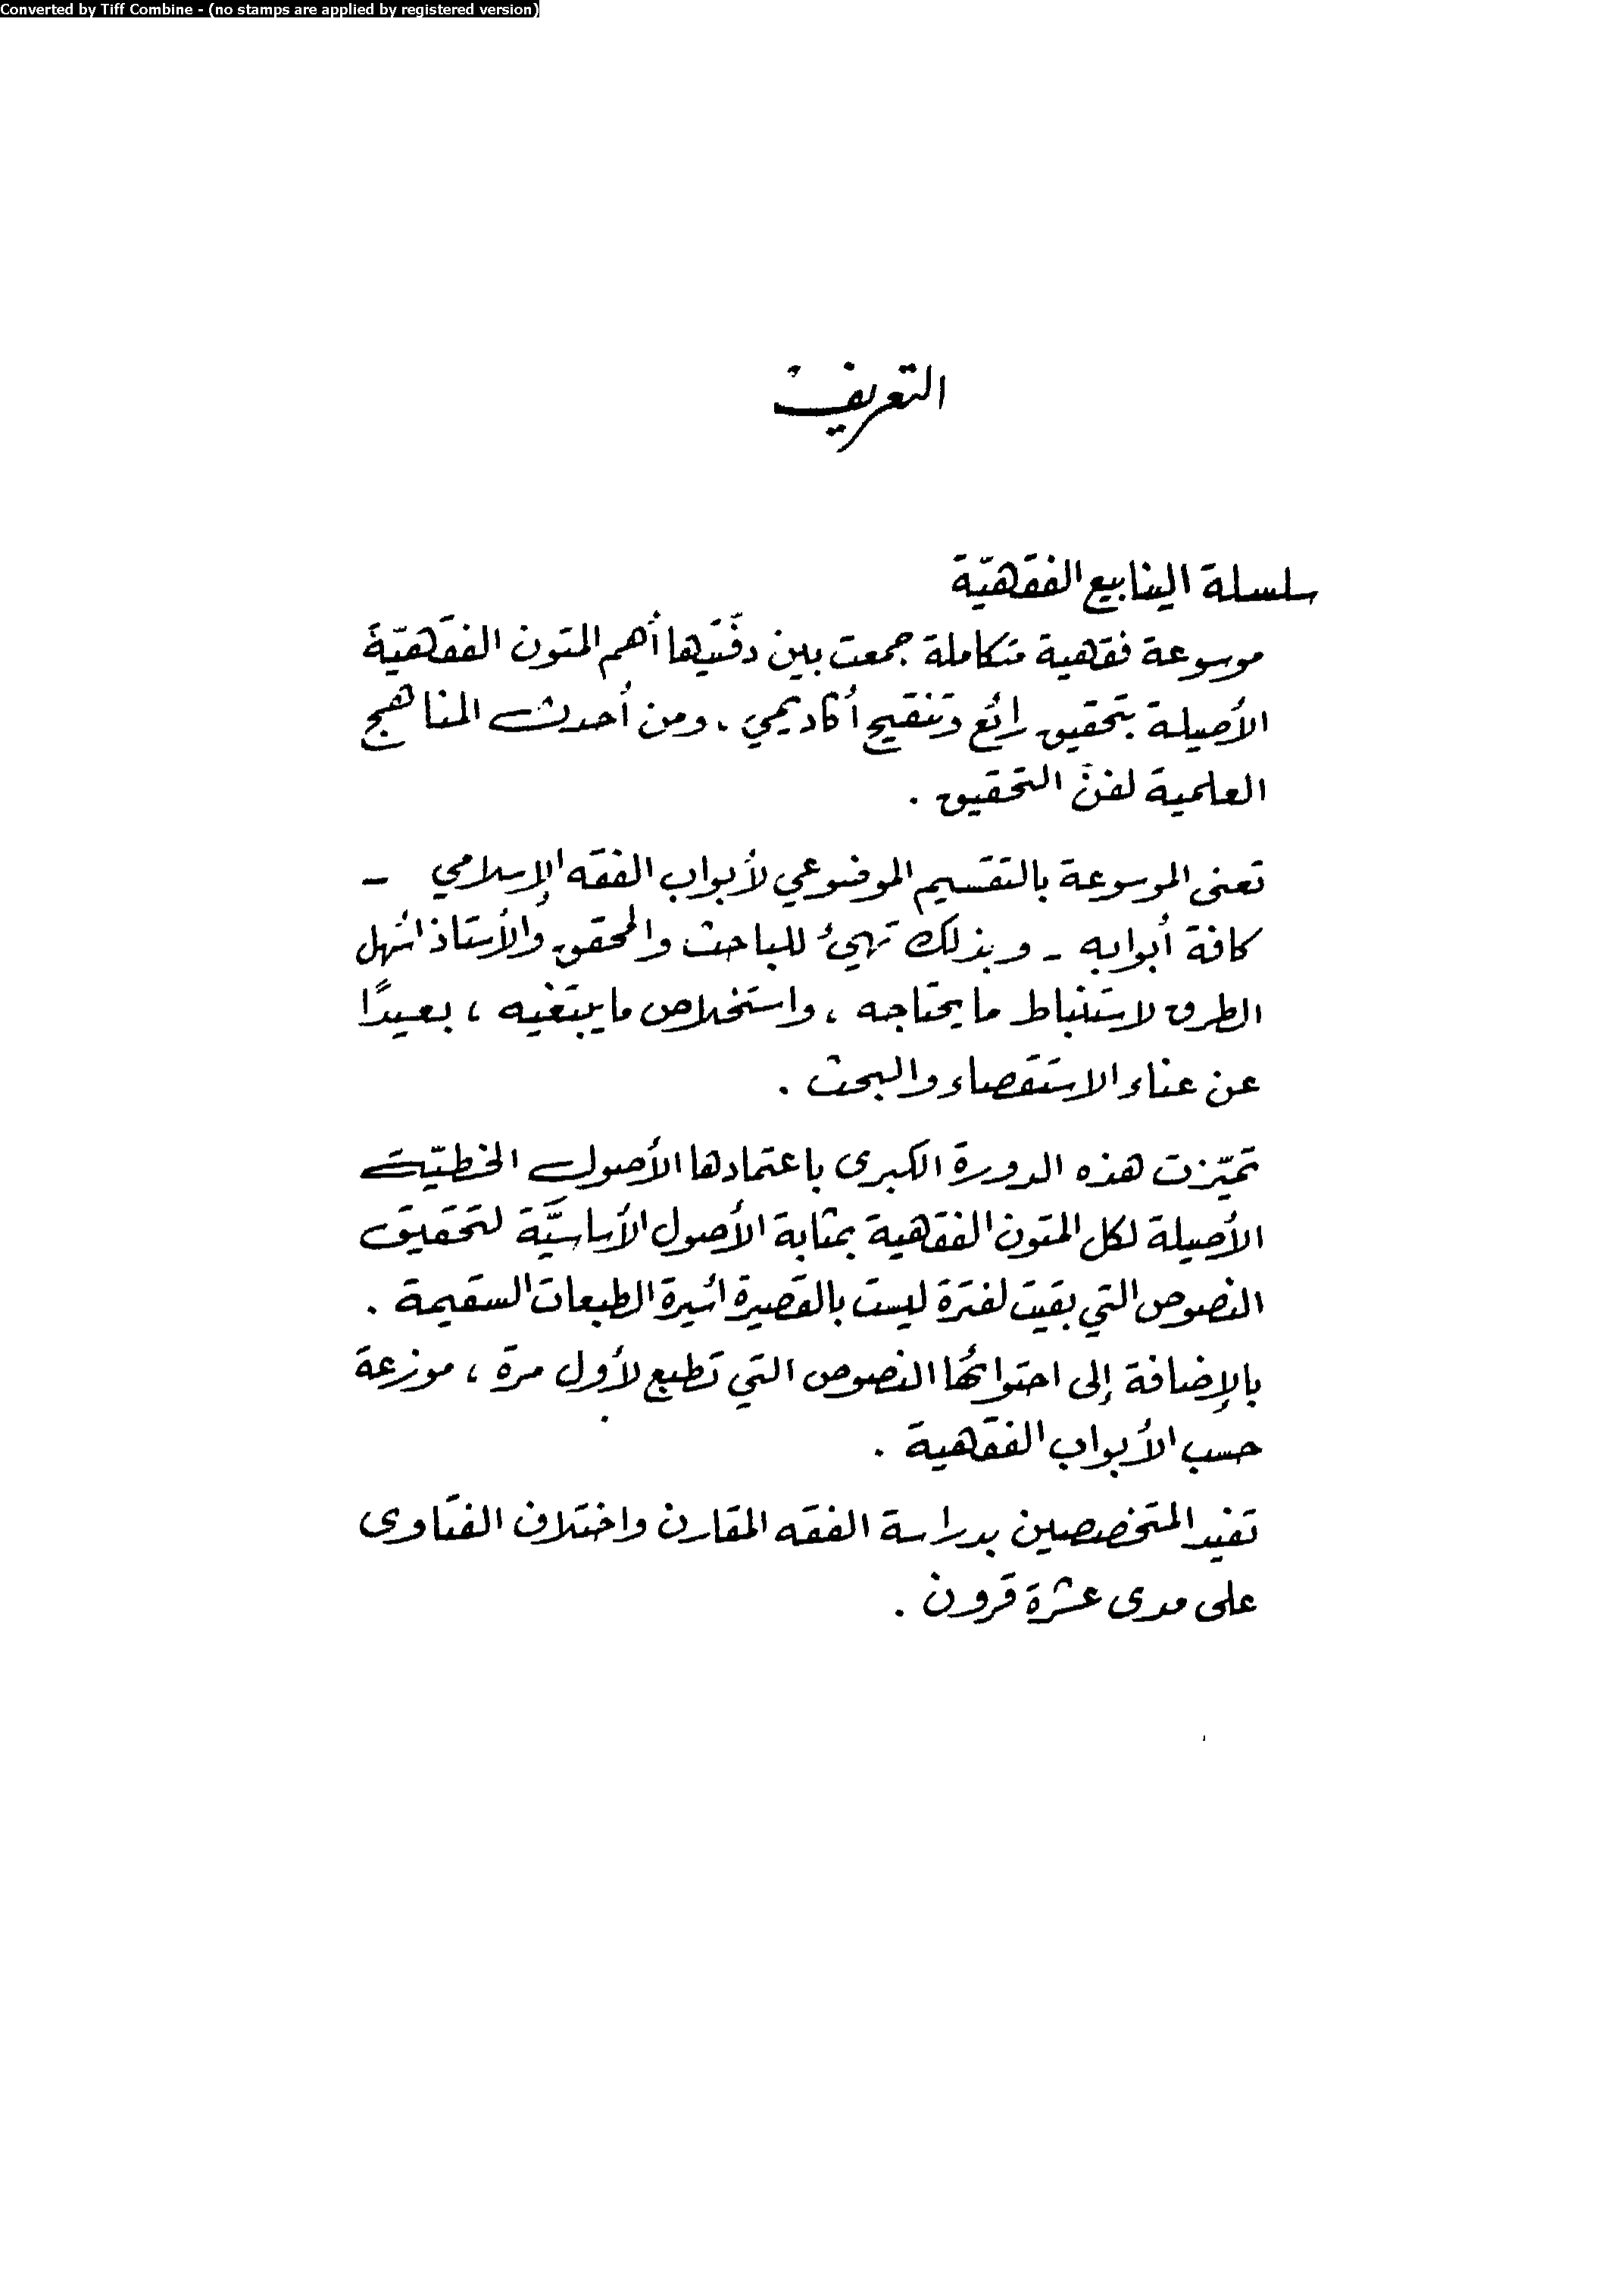 Converted by Tiff Combine - (no stamps are applied by registered version)
التعريف
سلسلة الينابيع الفقهيّة
موسوعة فقهية متكاملة جمعت بين دفّتيها أهم المتون الفقهيّة
الأصيلة بتحقيق رائع وتنقيح أكاديمي . ومن أحدث المناهج
العلمية لفنّ التحقيق .
تعنى الموسوعة بالتقسيم الموضوعي لأبواب الفقه الإسلامي -
كافة أبوابه - وبذلك تهيئ للباحث والمحقق والأستاذ أسهل
الطرق لاستنباط ما يحتاجه ، واستخلاص ما يبتغيه ، بعيدًا
عن عناء الاستقصاء والبحث .
تميّزت هذه الدورة الكبرى باعتمادها الأصول الخطيّة
الأصيلة لكل المتون الفقهية بمثابة الأصول الأساسيَّة لتحقيق
النصوص التي بقيت لفترة ليست بالقصيرة أسيرة الطبعات السقيمة .
بالإضافة إلى احتوائها النصوص التي تطبع لأول مرة ، موزعة
حسب الأبواب الفقهية .
تفيد المتخصصين بدراسة الفقه المقارن واختلاف الفتاوى
على مدى عشرة قرون .